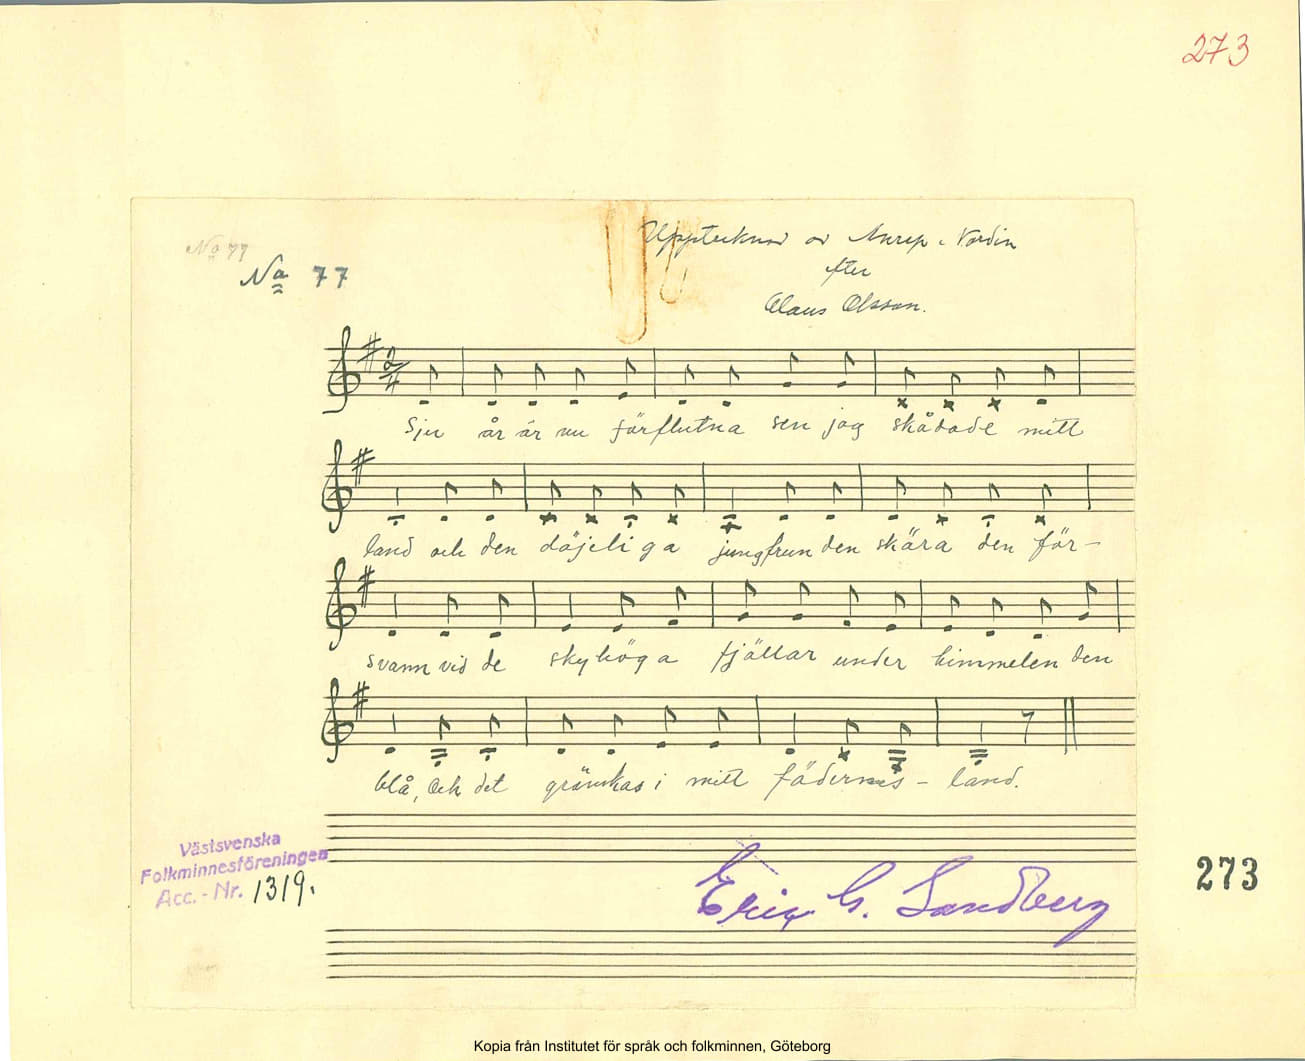 273
No 77
No 77
Upptecknad av Anrep-Nordin
efter
Claus Olsson.
2/4
Sju år är nu förflutna sen jag skådade mitt
land och den döjeliga jungfrun den sköra den för-
svann vid de skyhöga fjällar under himmelen den
blå, Och det grönskas i mitt fädernes-land.
Västsvenska
Folkminnesföreningen
Acc.-Nr. 1319.
Eric G. Sandberg
273
Kopia från Institutet för språk och folkminnen, Göteborg